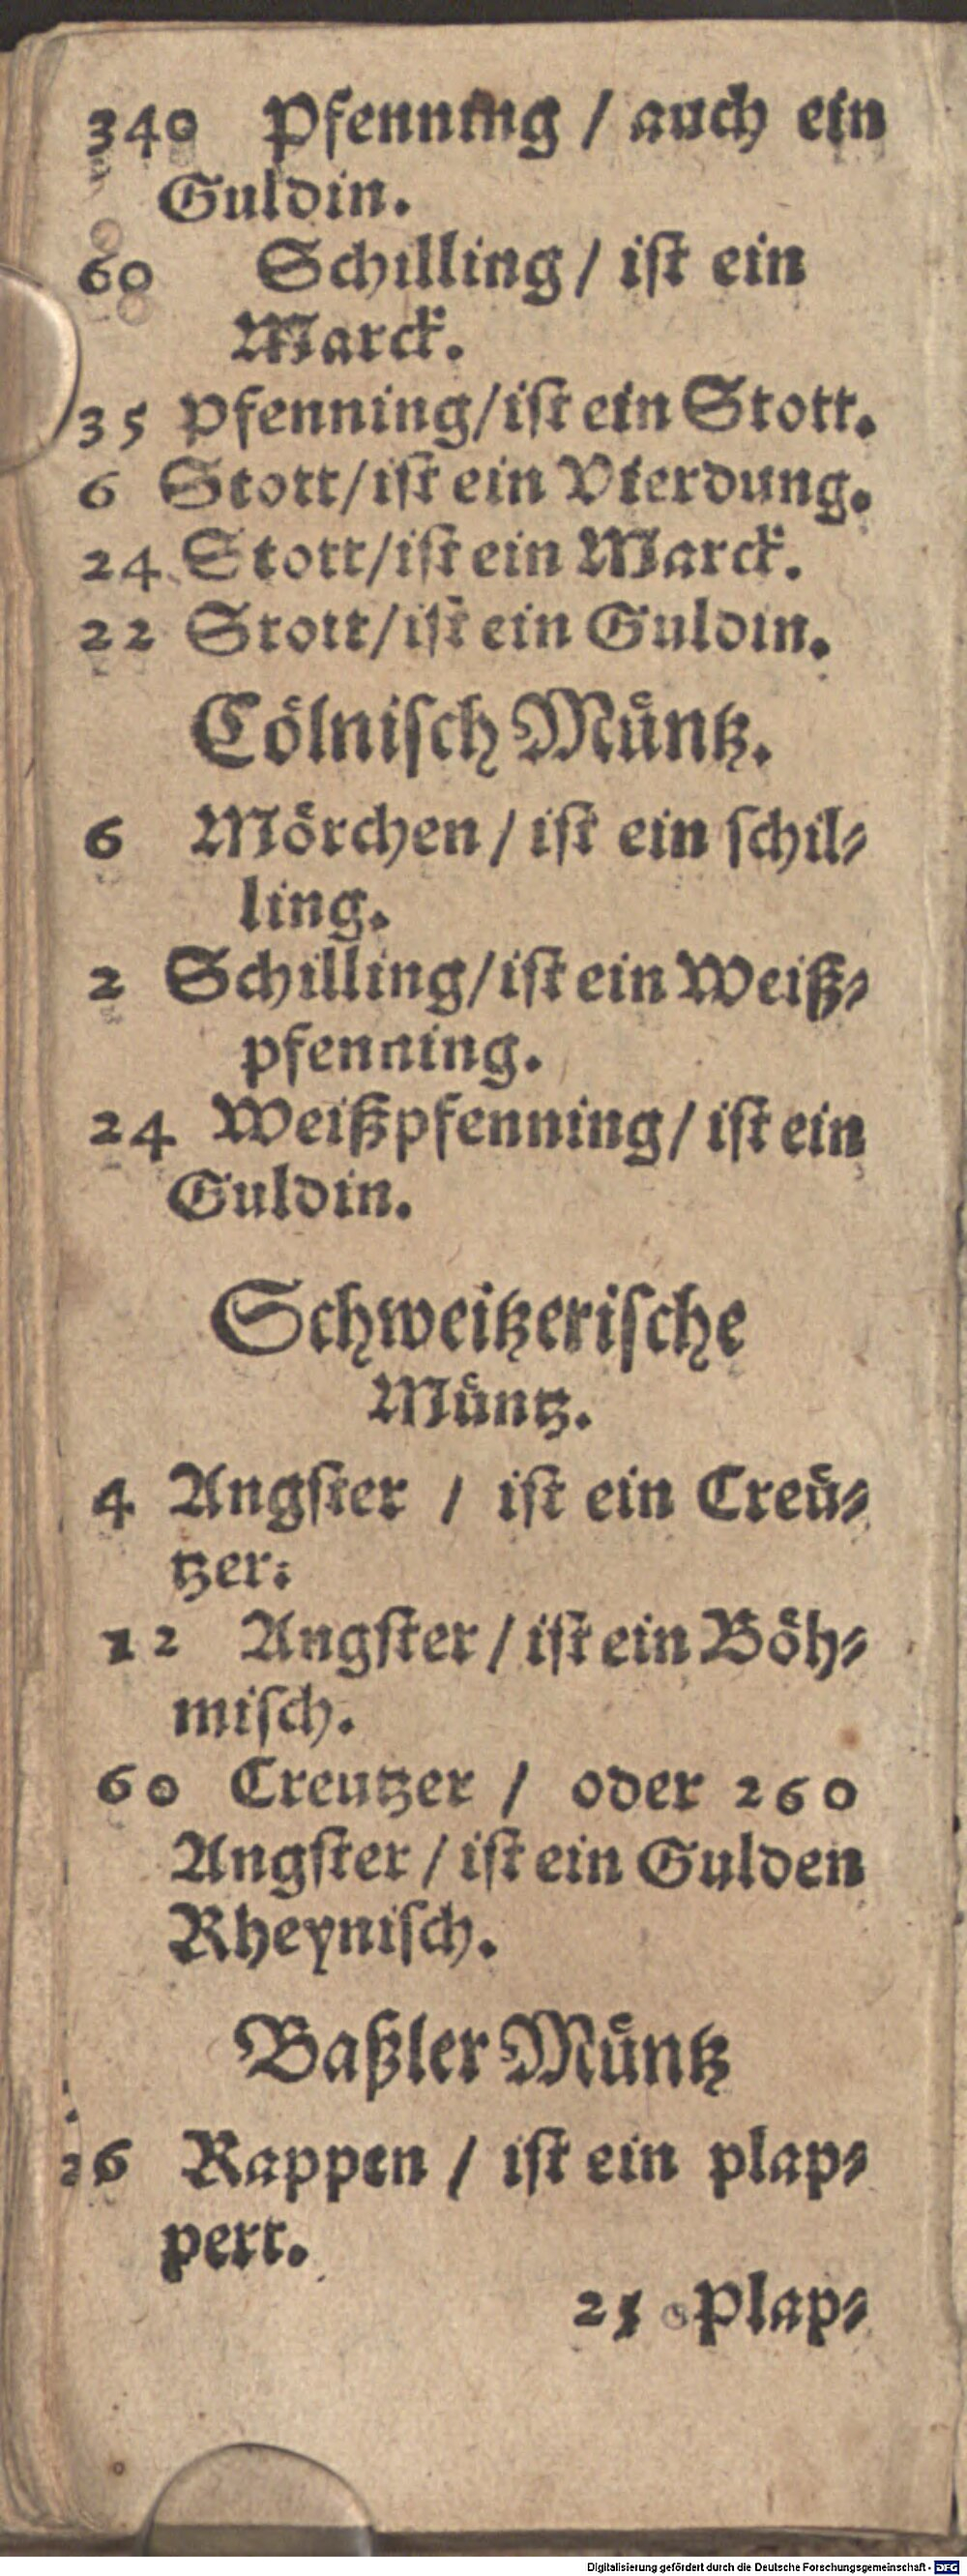 340 Pfenning / auch ein
Guldin.
60 Schilling / iſt ein
Marck.
35 Pfenning/iſt ein Stott.
6 Stott/iſt ein Vierdung.
24 Stott/iſt ein Marck.
22 Stott/iſt ein Guldin.
Coͤlniſch Muͤntz.
6 Moͤrchen / iſt ein ſchil⸗
ling.
2 Schilling/iſt ein Weiß⸗
pfenning.
24 Weißpfenning/ iſt ein
Guldin.
Schweitzeriſche
Muͤntz.
4 Angſter / iſt ein Creuͤ⸗
tzer:
12 Angſter / iſt ein Boͤh⸗
miſch.
60 Creutzer / oder 260
Angſter / iſt ein Gulden
Rheyniſch.
Baßler Muͤntz
26 Rappen / iſt ein plap⸗
pert.
25 Plap⸗
Digitalisierung gefördert durch die Deutsche Forschungsgemeinschaft - DFG